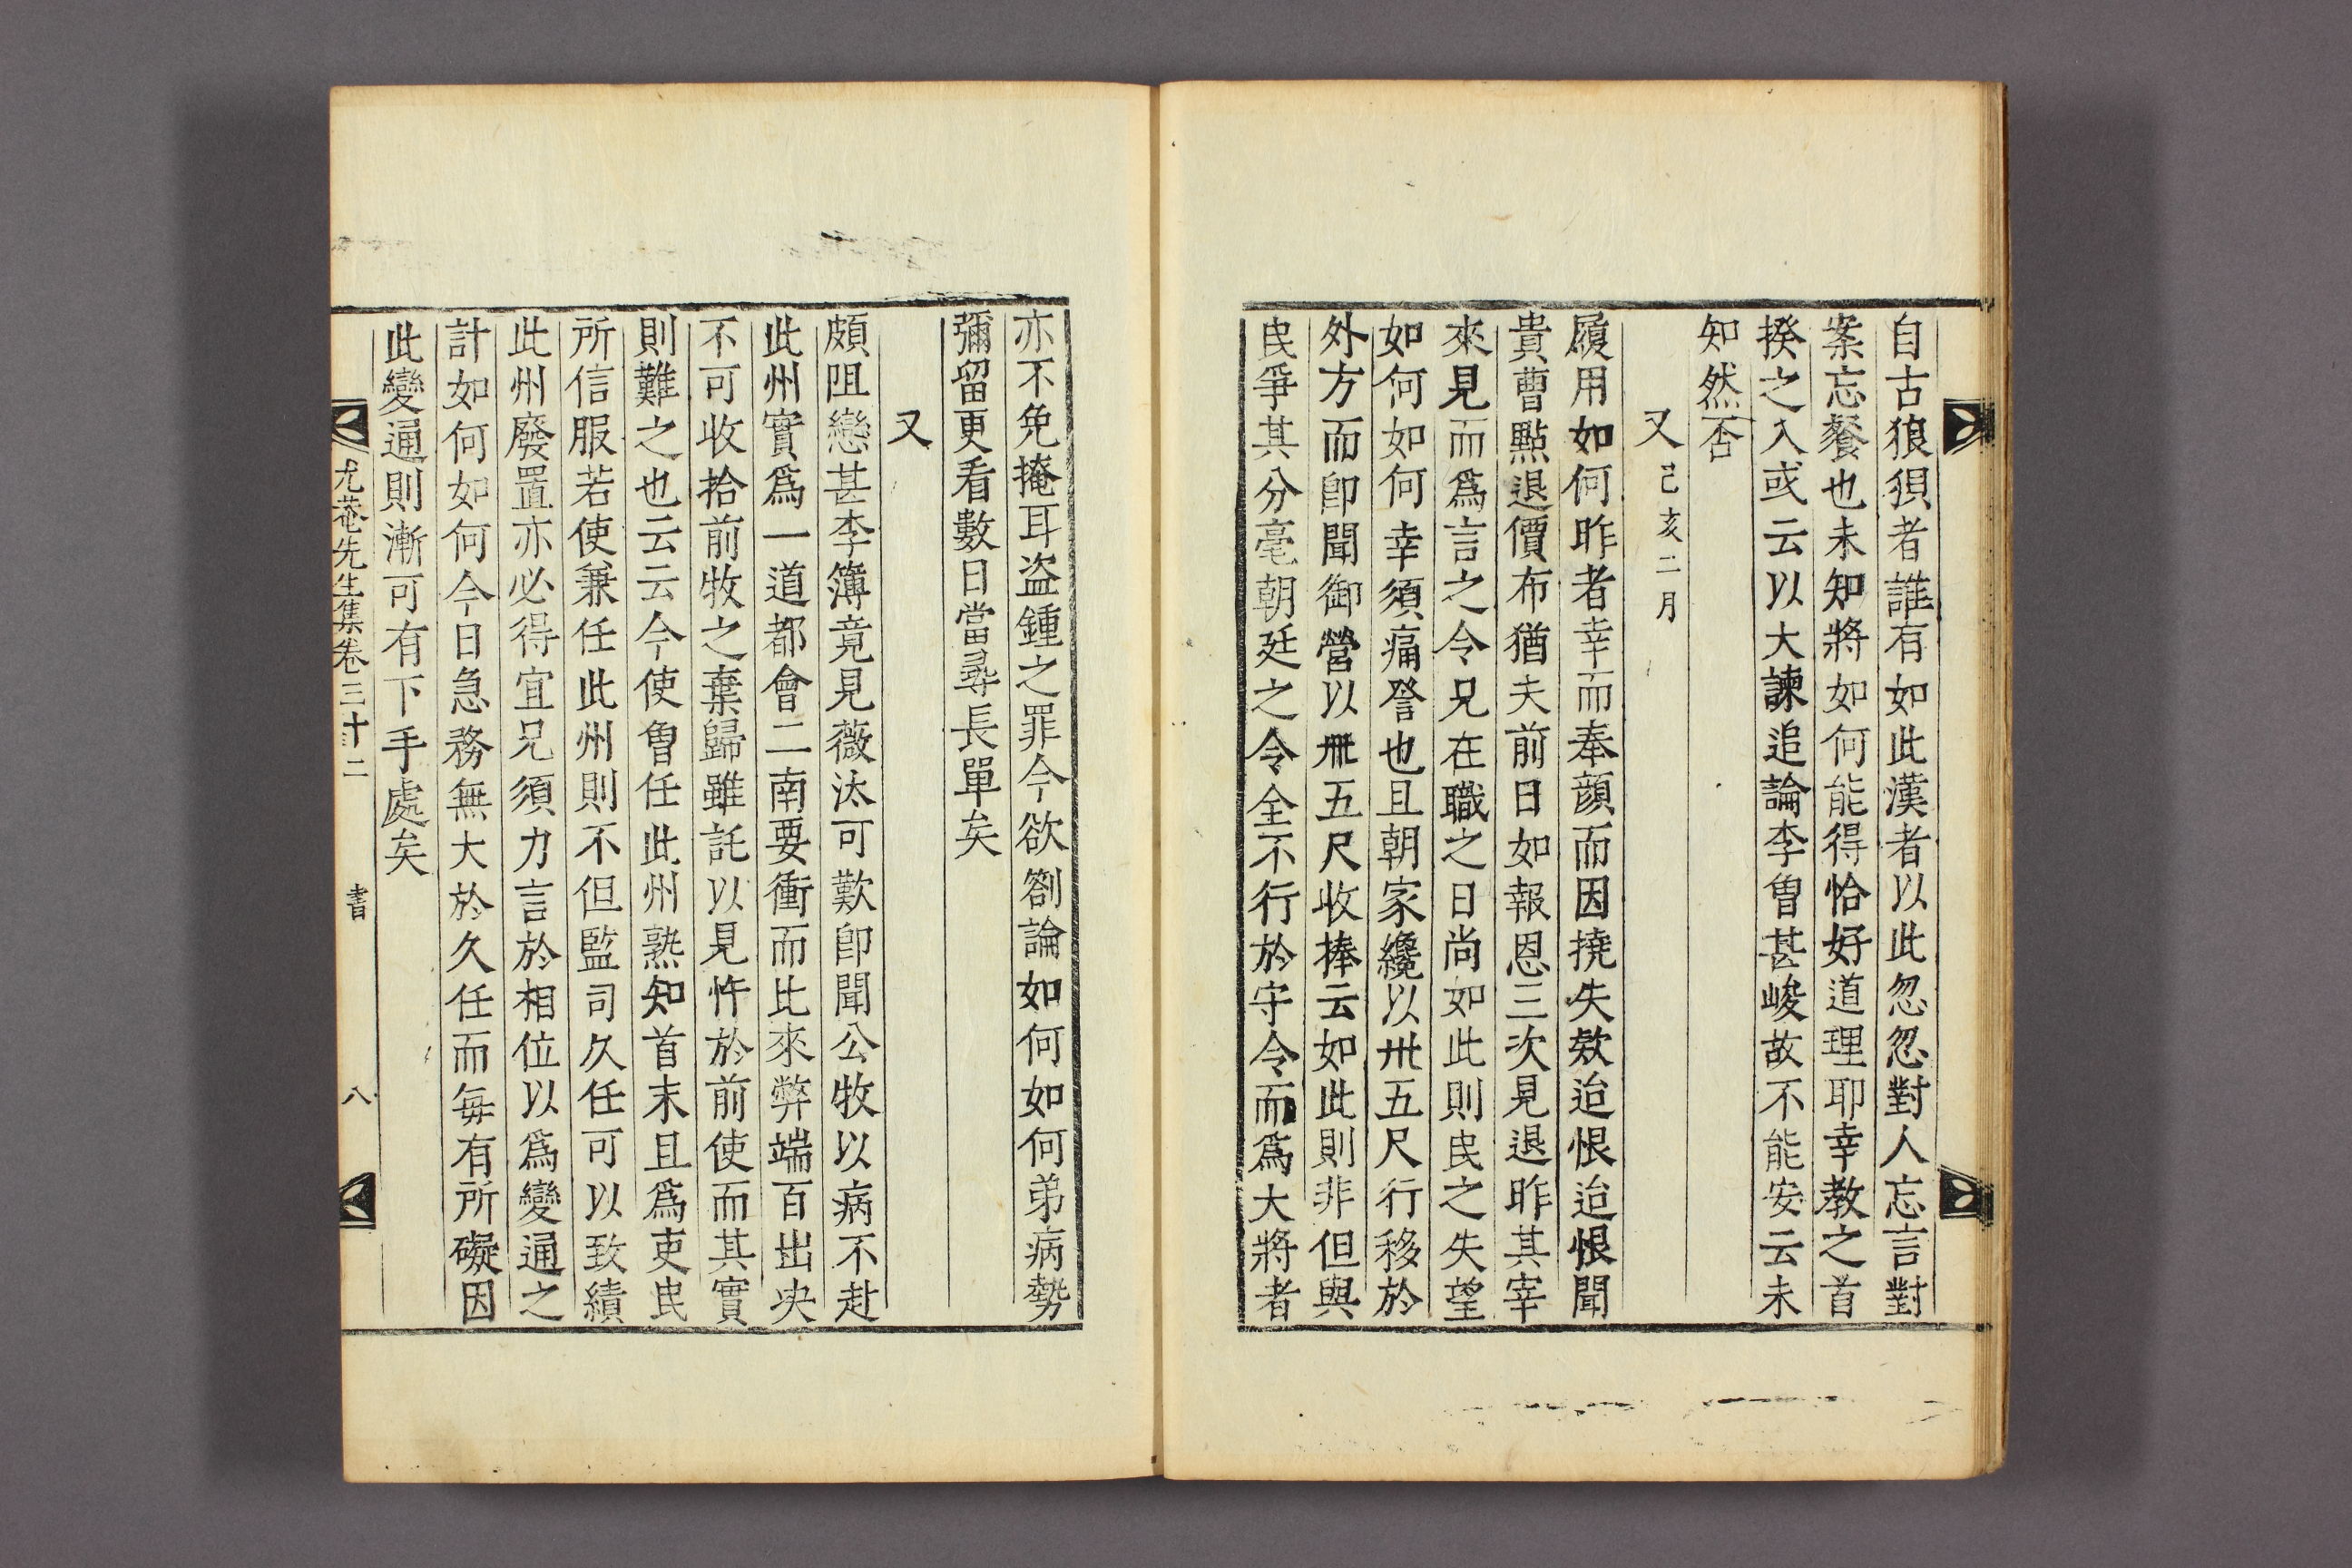 自古狼狽者誰有如此漢者以此忽忽對人忘言對
案忘餐也未知將如何能得恰好道理耶幸教之首
揆之入或云以大諫追論李曾甚峻故不能安云未
知然否
又己亥二月
履用如何昨者幸而奉顔而因撓失欸迨恨迨恨聞
貴曹點退價布猶夫前日如報恩三次見退昨其宰
來見而爲言之令兄在職之日尚如此則民之失望
如何如何幸須痛詧也且朝家纔以卅五尺行移於
外方而卽聞御營以卌五尺收捧云如此則非但與
民爭其分毫朝廷之令全不行於守令而爲大將者
亦不免掩耳盜鍾之罪今欲劄論如何如何弟病勢
彌留更看數日當尋長單矣
又
頗阻戀甚李簿竟見薇汰可歎卽聞公牧以病不赴
此州實爲一道都會二南要衝而比來弊端百出決
不可收拾前牧之棄歸雖託以見忤於前使而其實
則難之也云云今使曾任此州熟知首末且爲吏民
所信服若使兼任此州則不但監司久任可以致績
此州廢置亦必得宜兄須力言於相位以爲變通之
計如何如何今日急務無大於久任而每有所礙因
此變通則漸可有下手處矣
尤菴先生集卷三十二 書 八